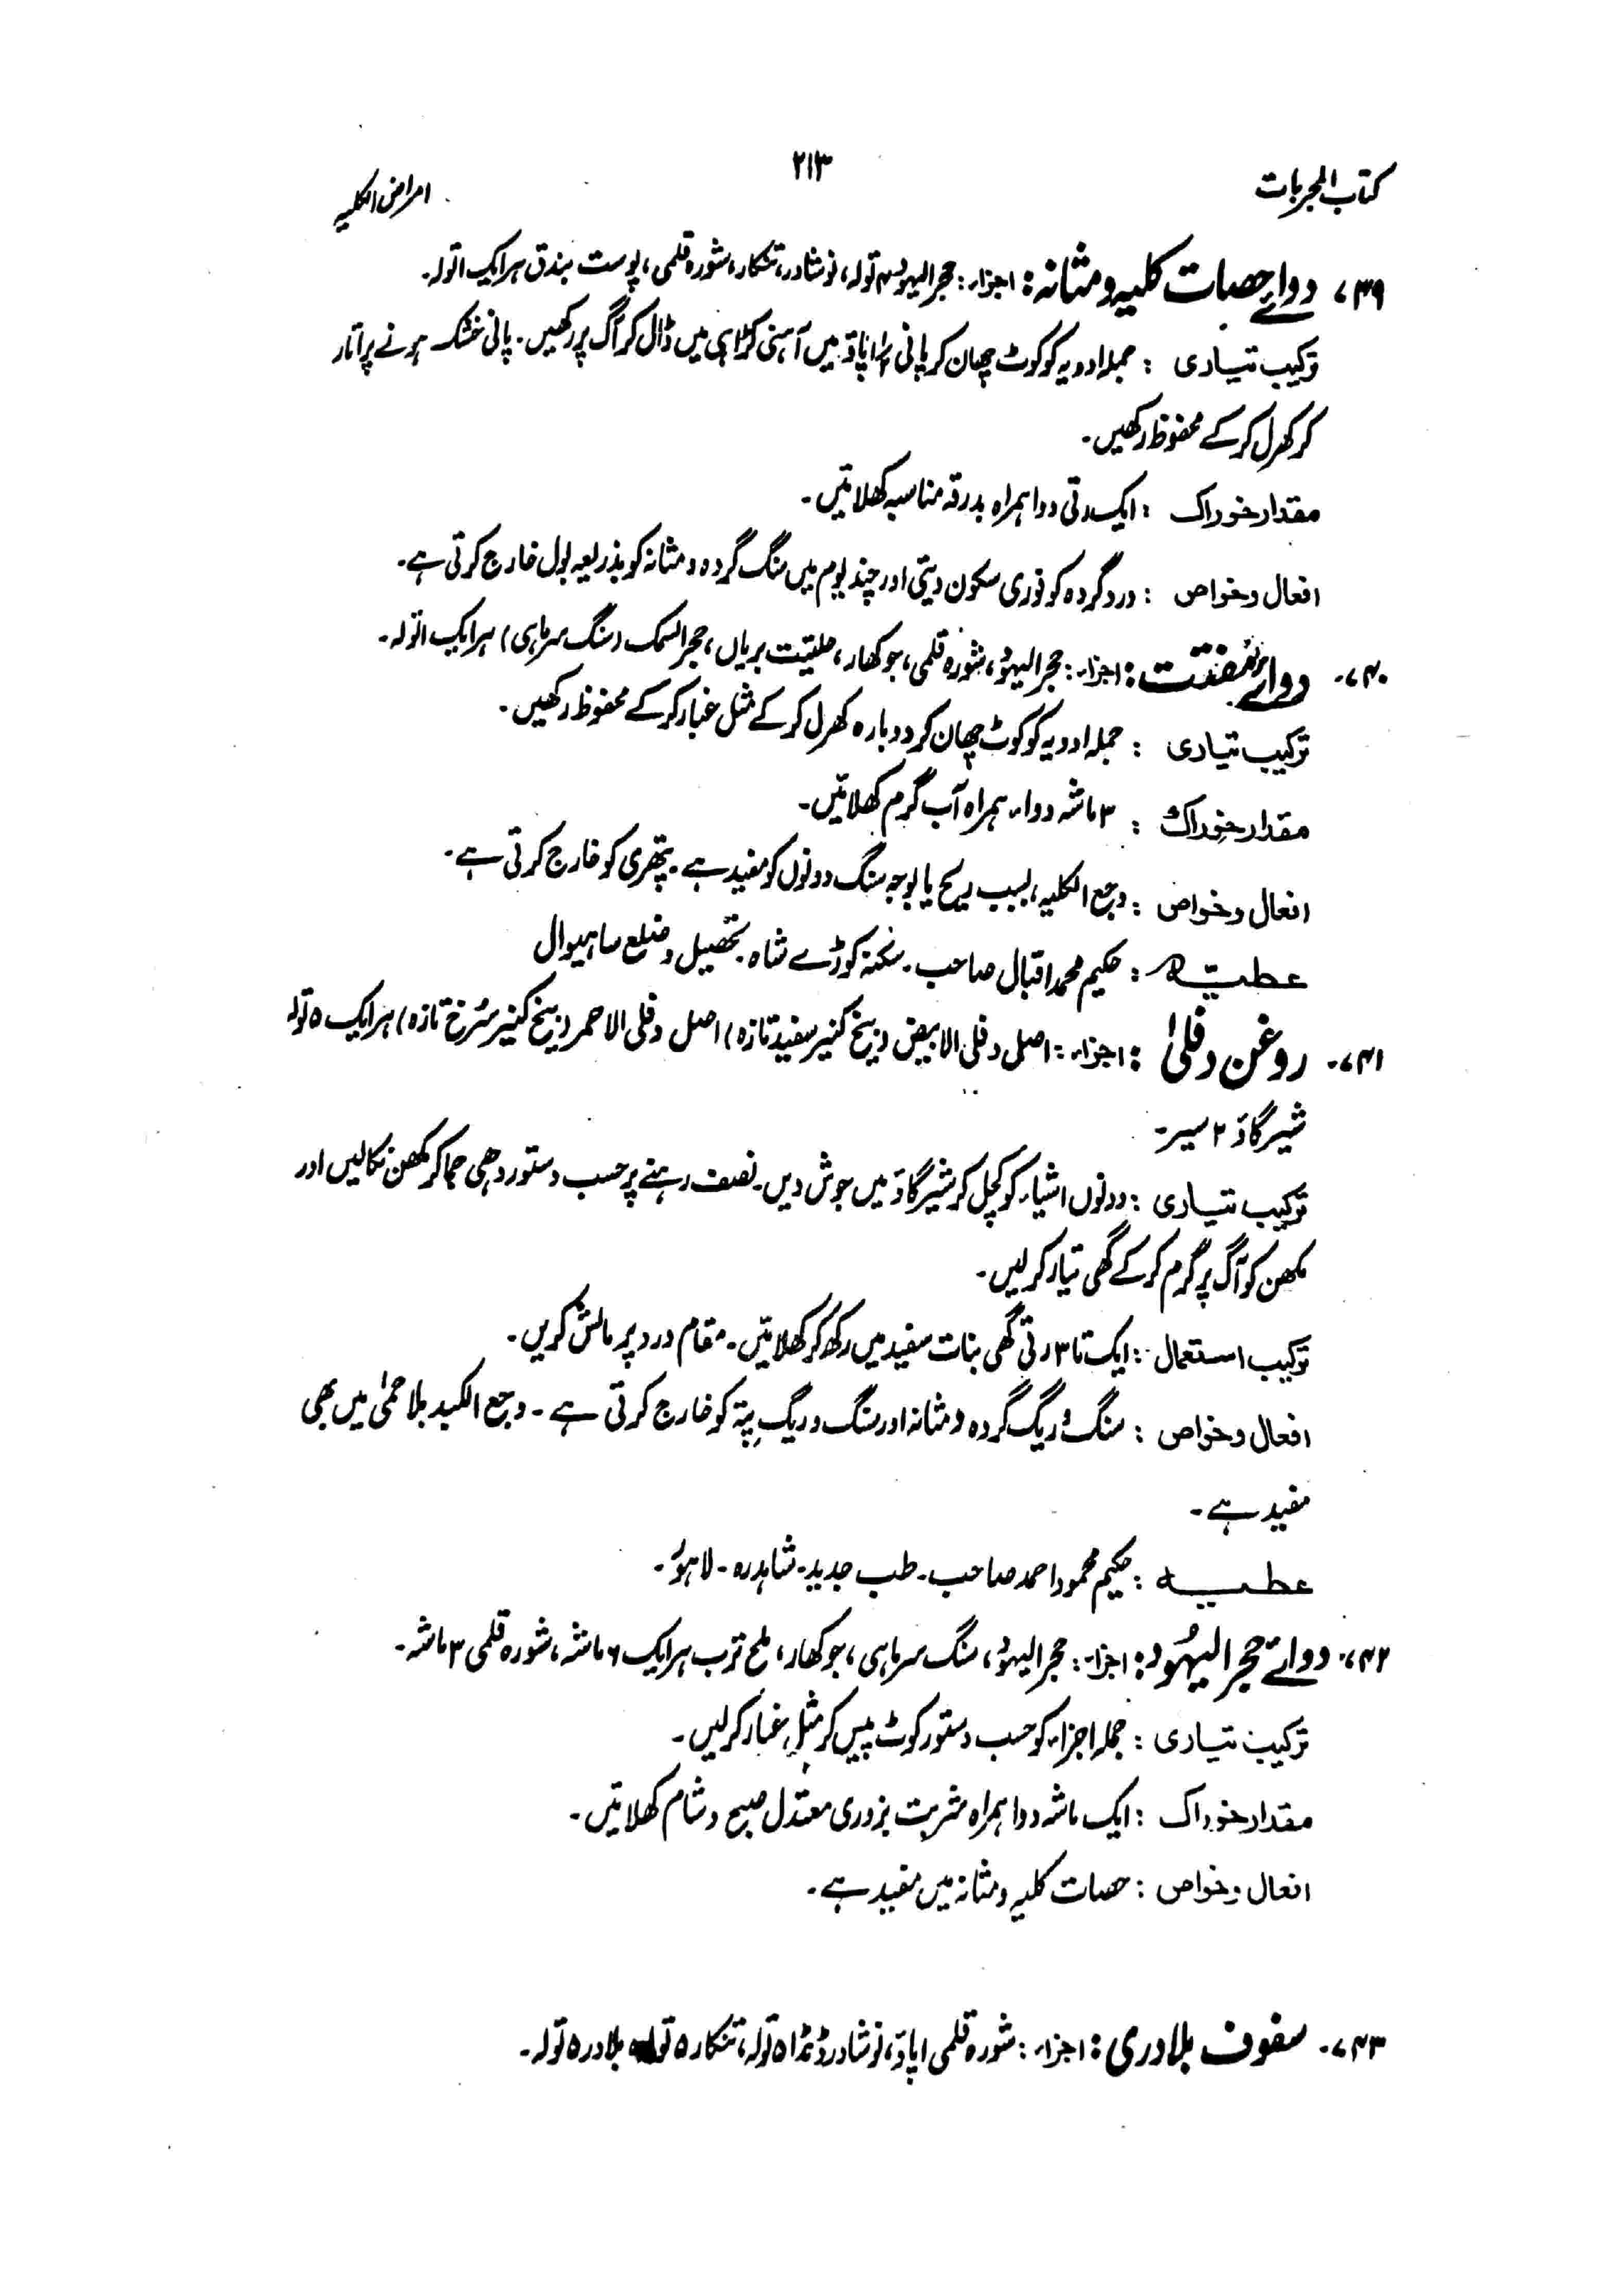 ۲۱۳
کتاب المجربات
امراض الکلیہ
۷۳۹ دوائے حصات کلیہ و مثانہ : اجزاء : حجر الیہود ۴ تولہ، نوشادر، تنکار، شورہ قلمی، پوست بندق ہر ایک ۱ تولہ۔
ترکیب تیاری : جملہ ادویہ کو کوٹ چھان کر پانی پاؤ میں آہنی کڑاہی میں ڈال کر آگ پر رکھیں۔ پانی خشک ہونے پر اتار
کر کھرل کر کے محفوظ رکھیں۔
مقدار خوراک : ایک رتی دوا ہمراہ بدرقہ مناسبہ کھلائیں۔
افعال و خواص : درد گردہ کو فوری سکون دیتی اور چند یوم میں سنگ گردہ و مثانہ کو بذریعہ بول خارج کرتی ہے۔
۷۴۰۔ دوائے مفتت : اجزاء : حجر الیہود، شورہ قلمی، جوکھار، حلتیت بریاں، حجر السمک (سنگ سرماہی) ہر ایک ۱ تولہ۔
ترکیب تیاری : جملہ ادویہ کو کوٹ چھان کر دوبارہ کھرل کر کے مثل غبار کر کے محفوظ رکھیں۔
مقدار خوراک : ۳ ماشہ دواء ہمراہ آب گرم کھلائیں۔
افعال و خواص : وجع الکلیہ، بسبب ریح یا بوجہ سنگ دونوں کو مفید ہے۔ پتھری کو خارج کرتی ہے۔
عطیہ : حکیم محمد اقبال صاحب۔ سکنہ کوڑے شاہ تحصیل و ضلع ساہیوال
۷۴۱۔ روغن دفلیٰ : اجزاء : اصل دفلی الابیض (بیخ کنیر سفید تازہ) اصل دفلی الاحمر (بیخ کنیر سرخ تازہ) ہر ایک ۵ تولہ
شیر گاؤ ۲ سیر۔
ترکیب تیاری : دونوں اشیاء کو کچل کر شیر گاؤ میں جوش دیں۔ نصف رہنے پر حسب دستور دھی جما کر مکھن نکالیں اور
مکھن کو آگ پر گرم کر کے گھی تیار کر لیں۔
ترکیب استعمال : ایک تا ۳ رتی گھی بنات سفید میں رکھ کر کھلائیں۔ مقام درد پر مالش کریں۔
افعال و خواص : سنگ و ریگ گردہ و مثانہ اور سنگ و ریگ پتہ کو خارج کرتی ہے۔ وجع الکبد بلا حمیٰ میں بھی
مفید ہے۔
عطیہ : حکیم محمود احمد صاحب۔ طب جدید۔ شاہدرہ۔ لاہور۔
۷۴۲۔ دوائے حجر الیہُود : اجزاء : حجر الیہود، سنگ سرماہی، جوکھار، ملح ترب ہر ایک ۶ ماشہ، شورہ قلمی ۳ ماشہ۔
ترکیب تیاری : جملہ اجزاء کو حسب دستور کوٹ پیس کر مثلِ غبار کر لیں۔
مقدار خوراک : ایک ماشہ دوا ہمراہ شربت بزوری معتدل صبح و شام کھلائیں۔
افعال و خواص : حصات کلیہ و مثانہ میں مفید ہے۔
۷۴۳۔ سفوف بلادری : اجزاء : شورہ قلمی ۱ پاؤ، نوشادر ڈنڈا ۵ تولہ، تنکار ۵ تولہ بلادر ۵ تولہ۔